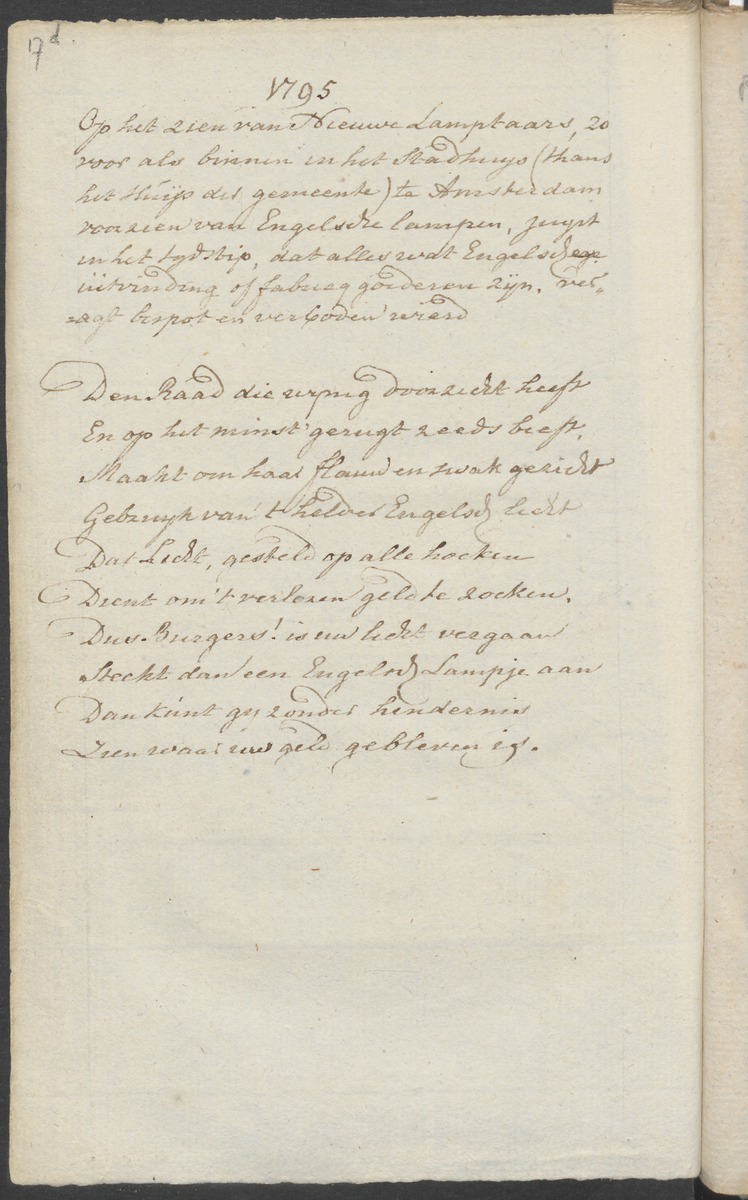 17d.
1795
Op het zien van Nieuwe Lamptaars, zo
voor als binnen in het Stadhuijs (thans
het Huijs der gemeente) te Amsterdam
voorzien van Engelsche lampen, juyst
in het tydstip, dat alles wat Engelsch
uitvinding of fabrieq goederen zijn, ver„
„agt bespot en verboden wierd
Den Raad die wijnig doorzicht heeft
En op het minst gerugt reeds beeft,
Maakt om haar flauw en swak gezicht
Gebruijk van 't helder Engelsch licht
Dat Licht, gesteld op alle hoeken
Dient om 't verloren geld te zoeken.
Dus Burgers! is uw licht vergaan
Steekt dan een Engelsch Lampje aan
Dan kunt gij zonder hindernis
Zien waar uw geld gebleven is.